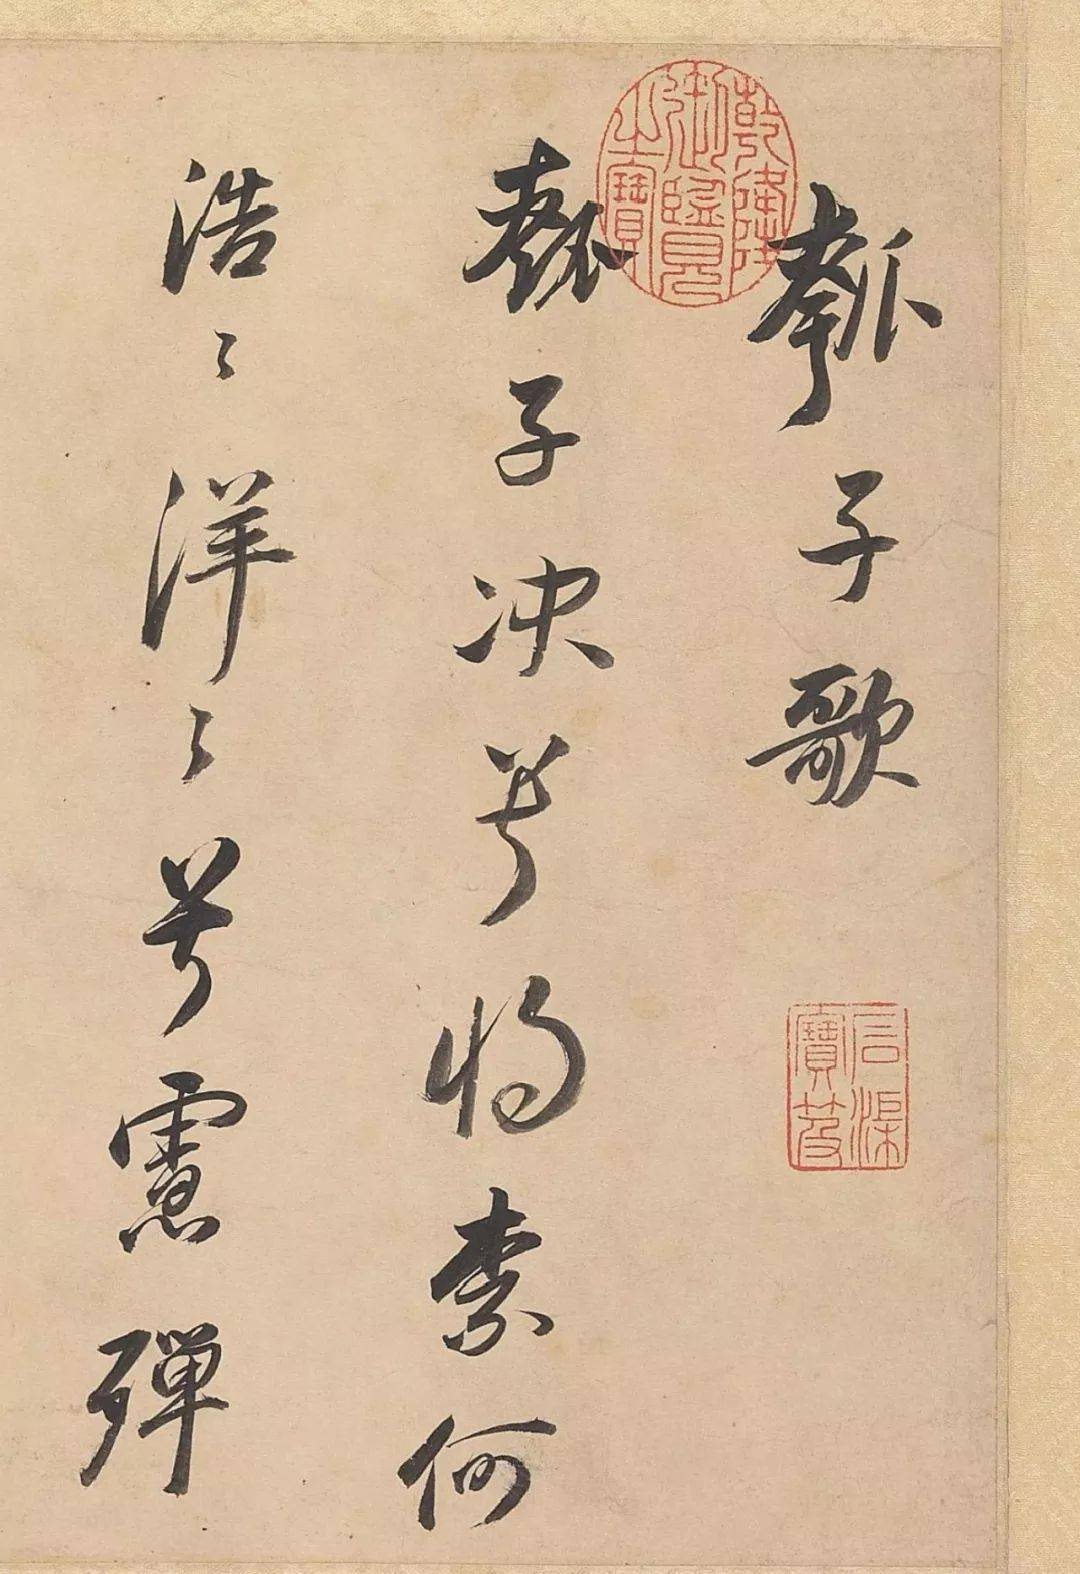 乾隆御覽之寶
瓠子歌
石渠寶笈
瓠子决兮將柰何
浩〻洋〻兮慮殫